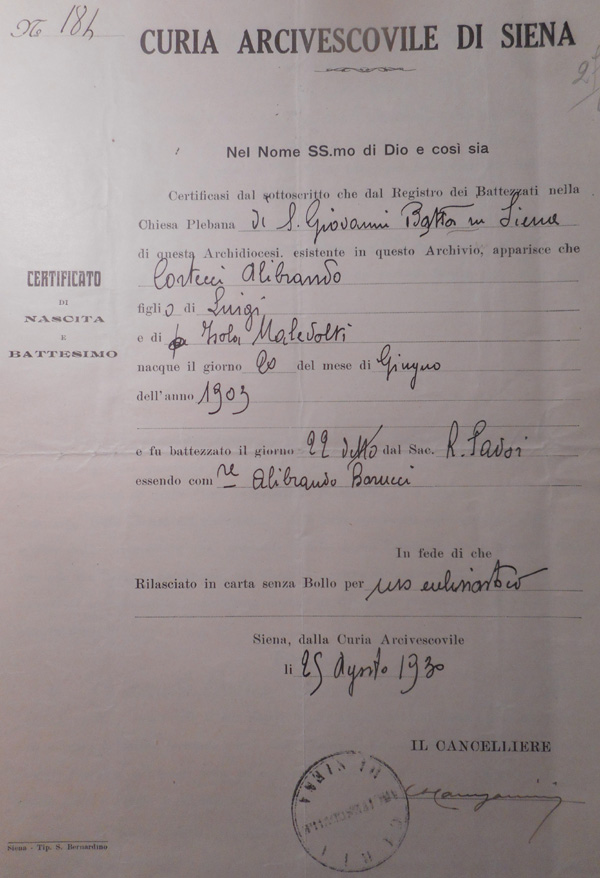 N 184
CURIA ARCIVESCOVILE DI SIENA
Nel Nome SS.mo di Dio e così sia
Certificasi dal sottoscritto che dal Registro dei Battezzati nella
Chiesa Plebana di S. Giovanni Batta in Siena
di questa Archidiocesi, esistente in questo Archivio, apparisce che
Cortecci Alibrando
figlio di Luigi
e di Isola Malevolti
nacque il giorno 20 del mese di Giugno
dell'anno 1903
e fu battezzato il giorno 22 detto dal Sac. R.
essendo com re Alibrando Barucci
In fede di che
Rilasciato in carta senza Bollo per uso ecclesiastico
Siena, dalla Curia Arcivescovile
li 25 Agosto 1930
IL CANCELLIERE
CERTIFICATO
DI
NASCITA
E
BATTESIMO
CURIA ARCIVESCOVILE DI SIENA
Siena - Tip. S. Bernardino